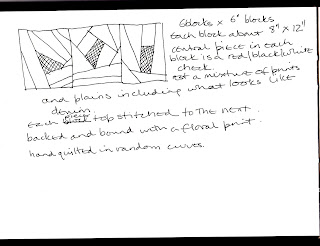 6blocks x 6 blocks
each block about 8" x 12"
central piece in each
block is a red/black/white
check.
rest a mixture of prints
and plains including what looks like
denim.
each piece top stitched to the next.
backed and bound with a floral print.
hand quilted in random curves.